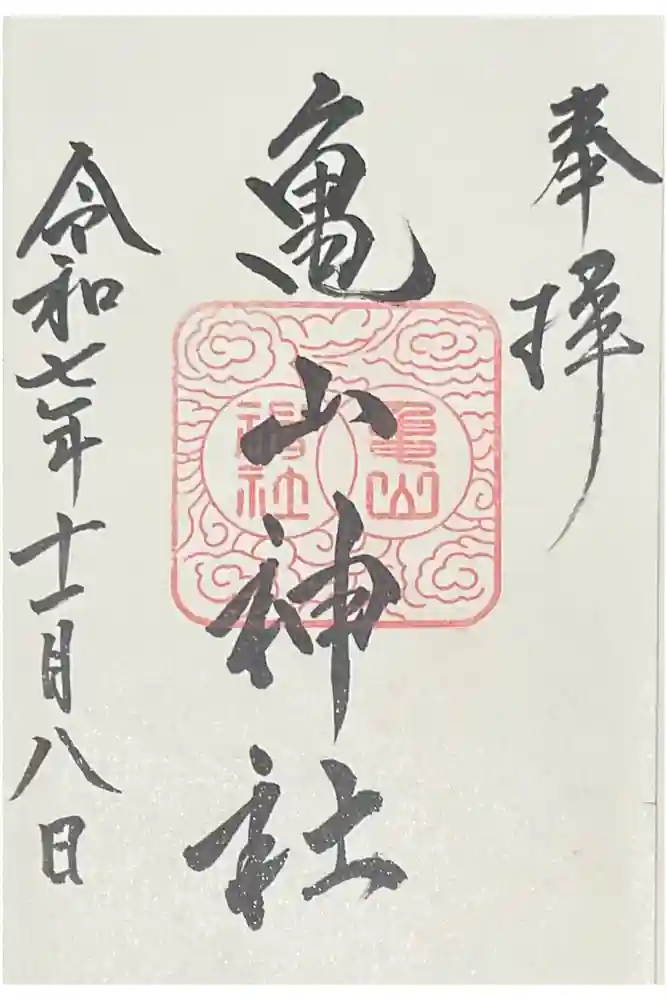 奉拝
亀山神社
亀山
神社
令和七年十一月八日